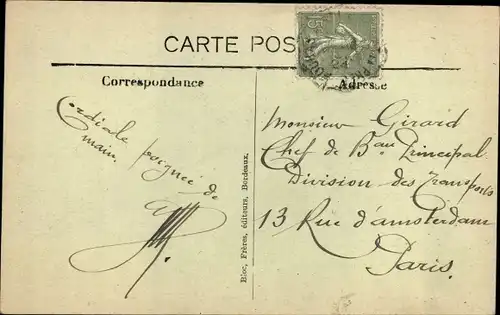 CARTE POS
15
Correspondance
Adresse
Cordiale poignée de
main.
Monsieur Girard
Chef de Bau Principal
Division des Transports
13 Rue d'amsterdam
Paris.
Bloc, Frères, éditeurs, Bordeaux.